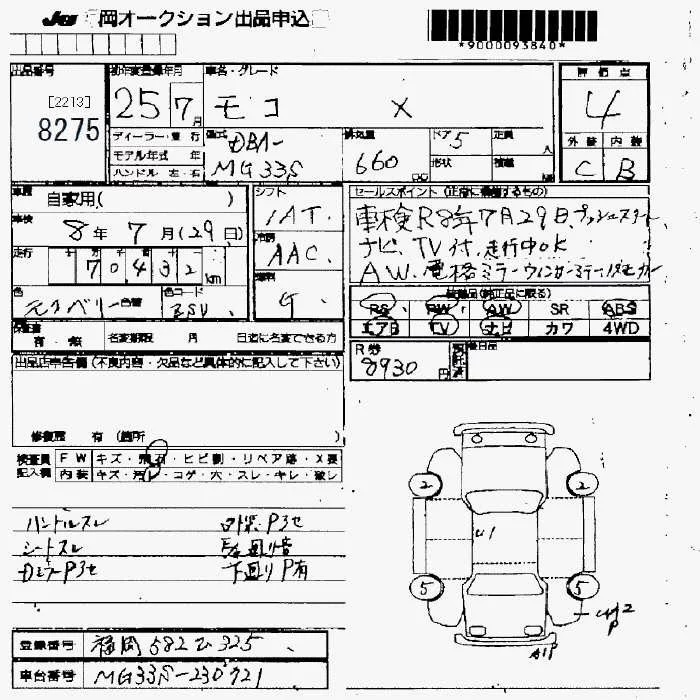 JU 岡オークション出品申込
*9000093840*
出品番号
[2213]
8275
初年度登録年月
25 7月
ディーラー・並行
モデル年式 年
ハンドル 左・右
車名・グレード
モコ X
型式
DBA-
MG33S
排気量
660
cc
ドア 5
形状
定員
人
積載
評価点
4
外装 内装
C B
車歴 自家用( )
車検 8年 7月(29日)
走行
70432 km
色
色替
色コード
シフト
IAT
冷房
AAC
燃料
G
セールスポイント(正常に機能するもの)
車検R8年7月29日、プッシュスタート
ナビ、TV付、走行中OK
AW、電格ミラー
装備品(純正品に限る)
PS PW AW SR ABS
エアB TV ナビ カワ 4WD
保証書
有・無
名変期限 月 日迄に名変できる方
R券
8930円
後日品
出品店申告欄(不良内容・欠品など具体的に記入して下さい)
修復歴 有 (箇所 )
検査員
記入欄
FW キズ・飛石・ヒビ割・リペア跡・X要
内装 キズ・汚レ・コゲ・穴・スレ・キレ・破レ
ハンドルスレ
シートスレ
下回りP有
2 2
U1
5 5
登録番号 福岡582 325
車台番号 MG33S-230721